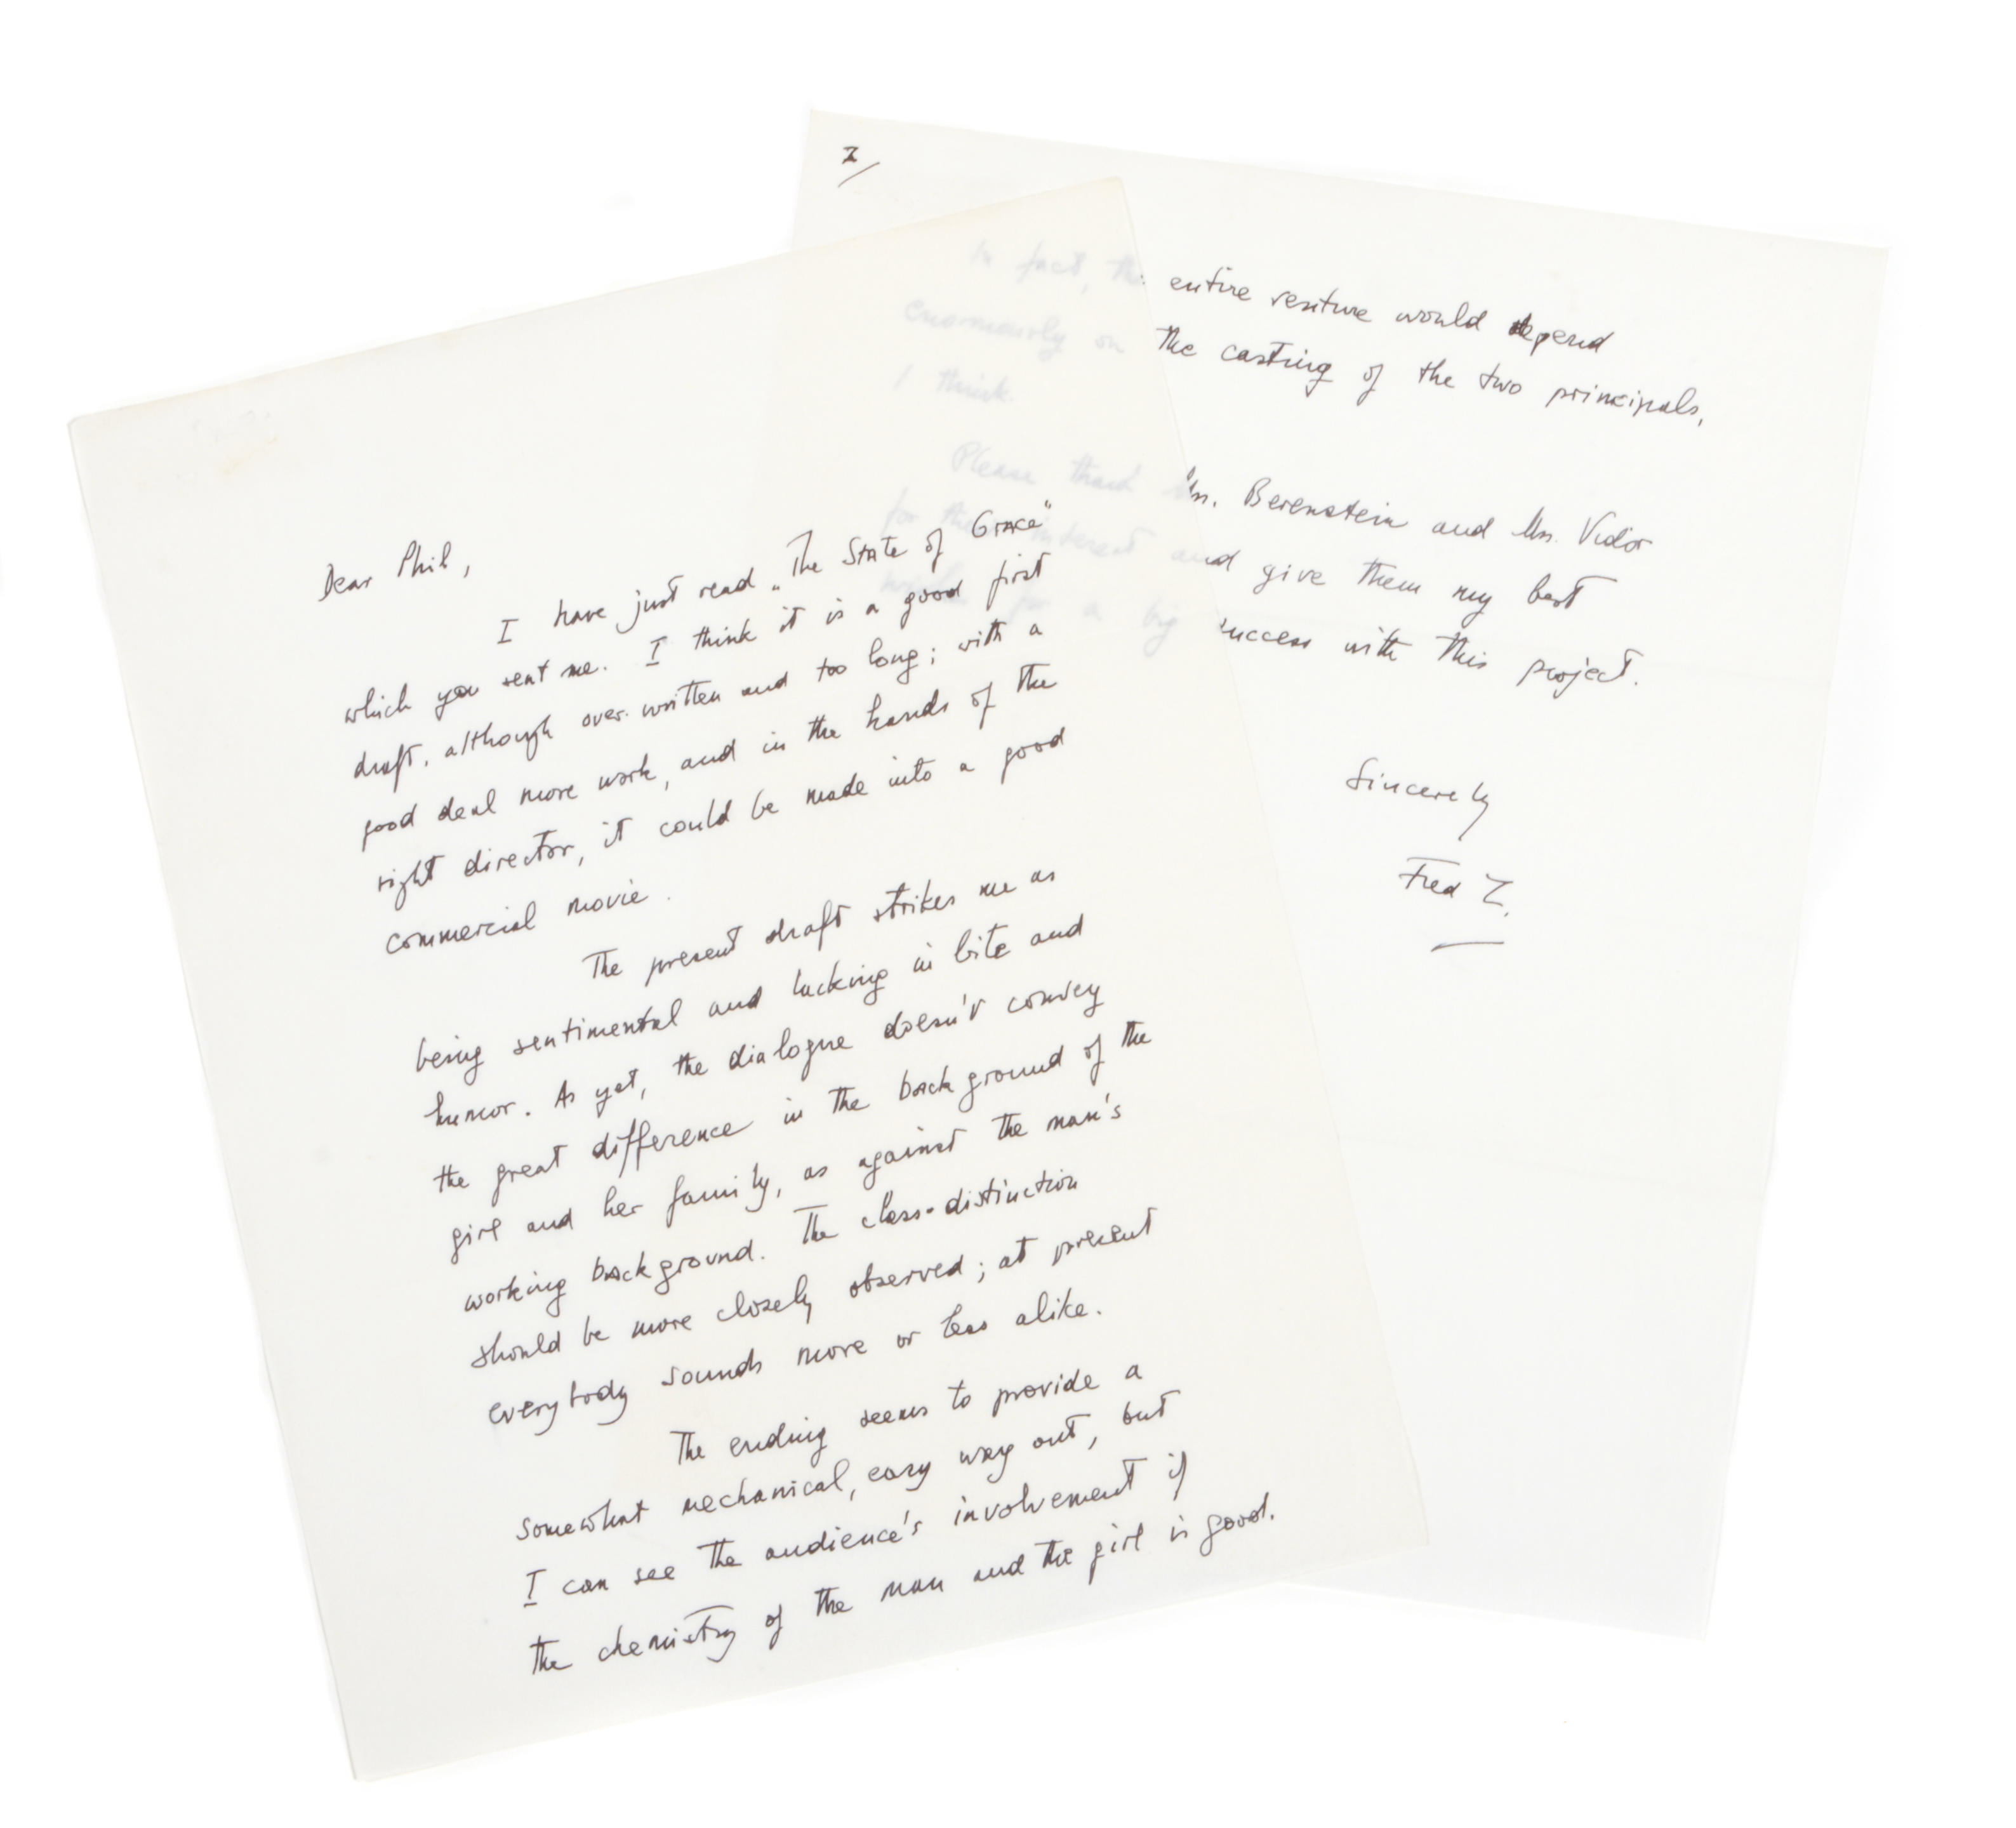 Dear Phil,
I have just read „The State of Grace"
which you sent me. I think it is a good first
draft, although over-written and too long; with a
good deal more work, and in the hands of the
right director, it could be made into a good
commercial movie.
The present draft strikes me as
being sentimental and lacking in bite and
humor. As yet, the dialogue doesn't convey
the great difference in the background of the
girl and her family, as against the man's
working background. The class-distinction
should be more closely observed; at present
everybody sounds more or less alike.
The ending seems to provide a
somewhat mechanical, easy way out, but
I can see the audience's involvement if
the chemistry of the man and the girl is good.
2/
In fact, the entire venture would depend
enormously on the casting of the two principals,
I think.
Please thank Mr. Berenstein and Mr. Vidor
for their interest and give them my best
wishes for a big success with this project.
Sincerely
Fred Z.